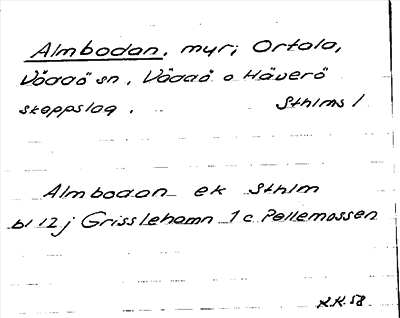 Almbodan, myr; Ortola,
Vöddö sn., Väddö o Häverö
skeppslag. Sthlms l
Almbodan ek Sthlm
bl 12 j Grisslehamn 1 c Pellemossen
KK. 58